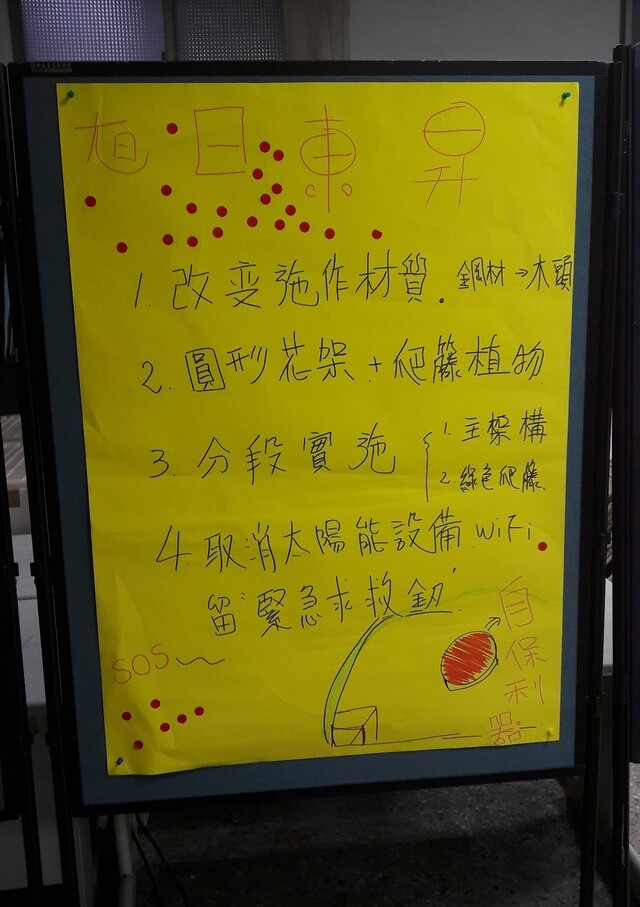 旭日東昇
1. 改变施作材質。鋼材→木頭
2. 圓形花架+爬籐植物
3. 分段實施 { 1. 主架構
2. 綠色爬籐
4. 取消太陽能設備.WiFi.
留"緊急求救鈕"
SOS~
自保利器